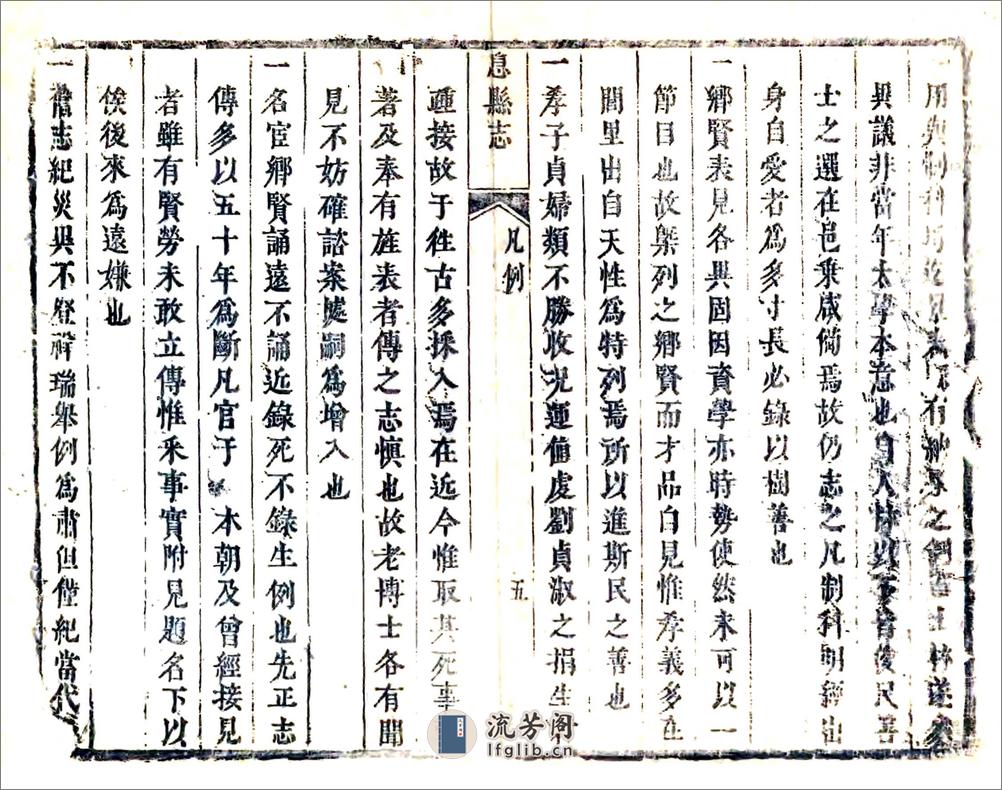 一用與制科
異議非當年太學本意也自人
士之選在邑乘咸備焉故仍志之凡制科明經出
身自愛者為多寸長必錄以樹善也
一鄉賢表見各異固因資學亦時勢使然未可以一
節目也故槩列之鄉賢而才品自見惟孝義多在
閭里出自天性為特列焉所以進斯民之善也
一孝子貞婦類不勝收况運值虔劉貞淑之捐生
踵接故于徃古多採入焉在近今惟取其死事
著及奉有旌表者傳之志慎也故老博士各有聞
見不妨確諮案據嗣為增入也
一名宦鄉賢誦遠不誦近錄死不錄生例也先正志
傳多以五十年為斷凡官于 本朝及曾經接見
者雖有賢勞未敢立傳惟釆事實附見題名下以
俟後來為遠嫌也
一舊志紀災異不登祥瑞舉例為肅但僅紀當代
息縣志
凡例
五
流芳阁
lfglib.cn